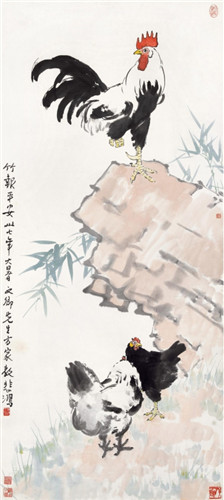 竹報平安卅七年大暑文卿先生方家教悲鴻